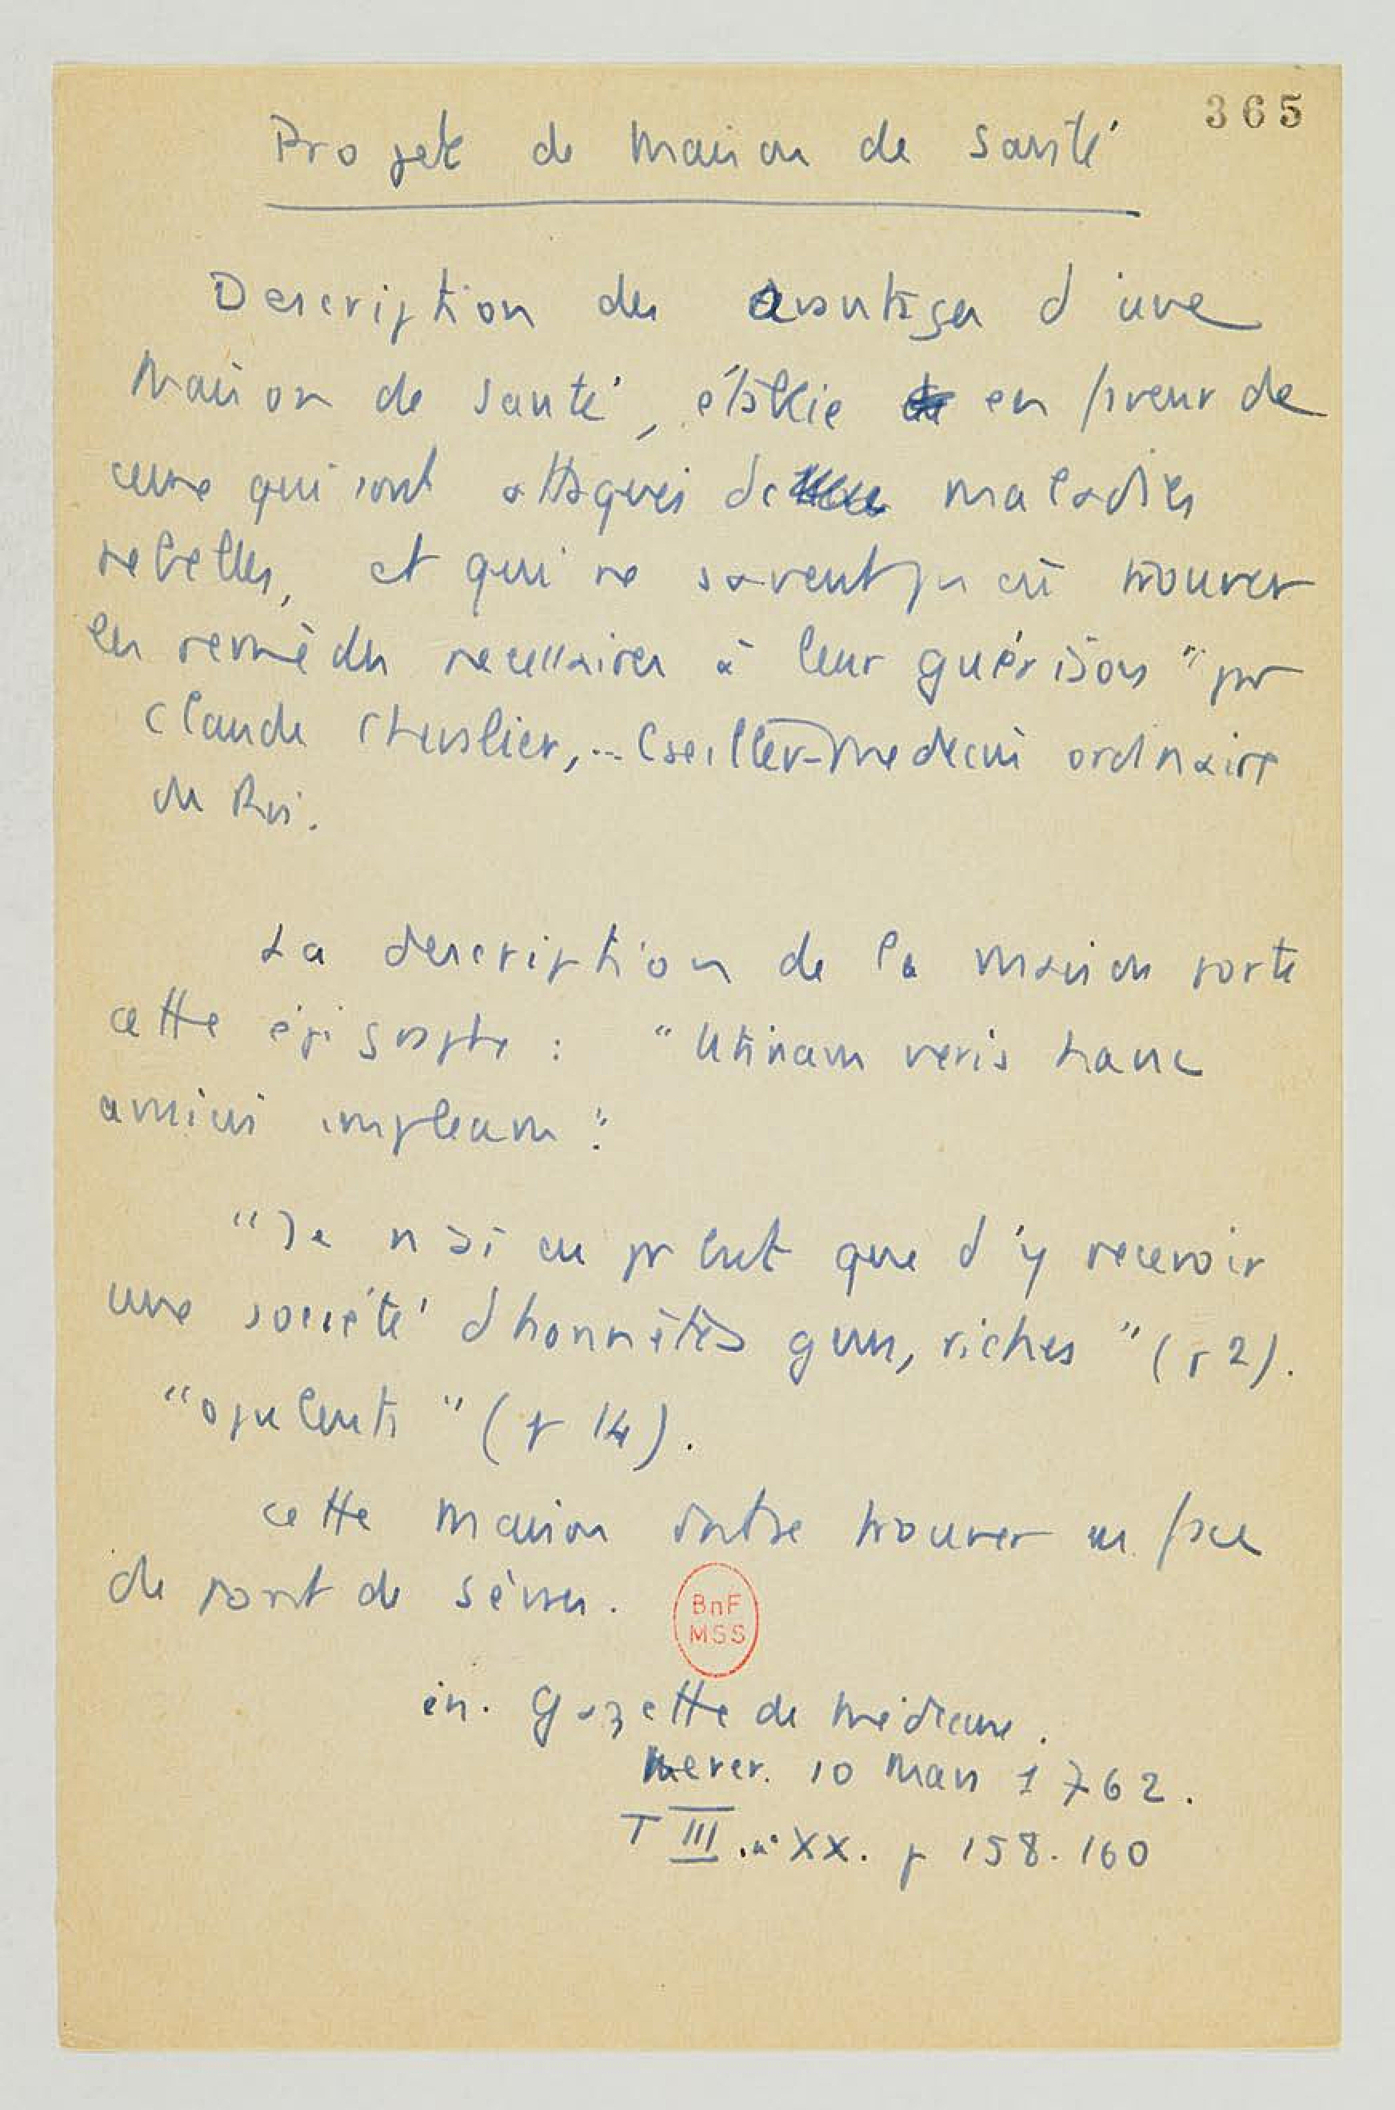 365
Projet de Maison de Santé
Description des avantages d'une
Maison de Santé, établie en faveur de
ceux qui sont attaqués de maladies
rebelles, et qui ne savent pas où trouver
les remèdes necessaires à leur guérison" par
Claude Chevalier, .. Cseiller-Medecin ordinaire
du Roi.
La description de la maison porte
cette épigraphe : "Utinam veris hanc
amicis impleam".
"Je n'ai eu pr but que d'y recevoir
une société d'honnêtes gens, riches" (p 2).
"opulents" (p 14).
cette maison doit se trouver en face
du pont de Sèvres.
in. Gazette de Médecine.
Mercr. 10 Mars 1762.
T III. n° XX. p 158-160
BnF
MSS